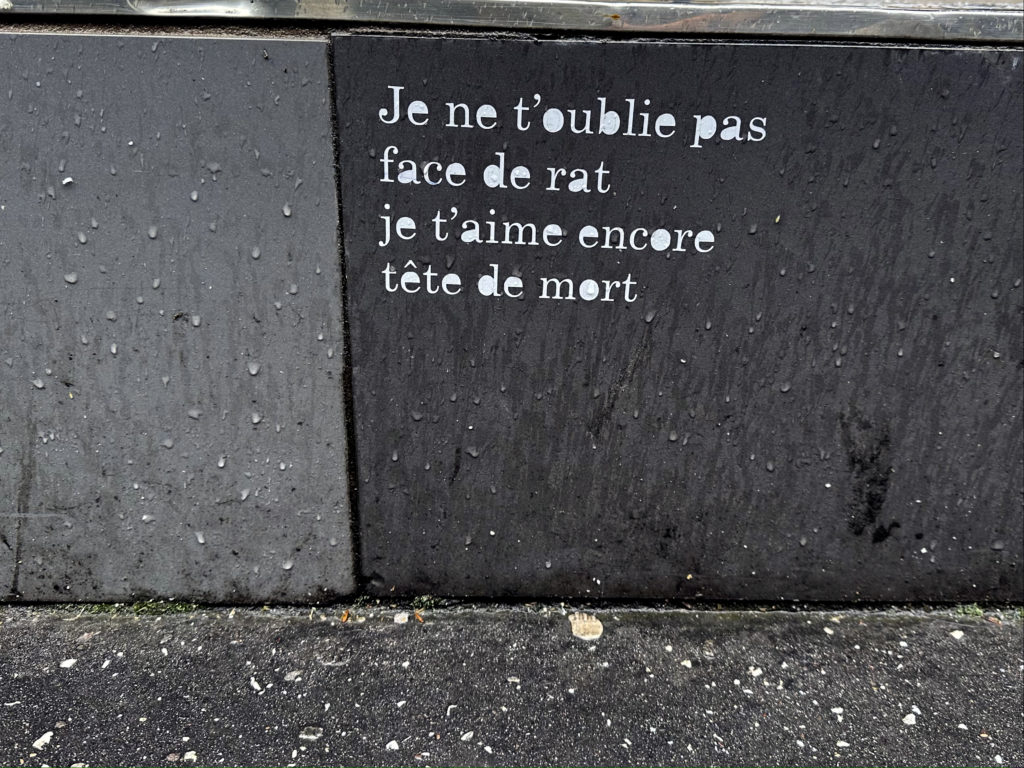 Je ne t’oublie pas
face de rat
je t’aime encore
tête de mort